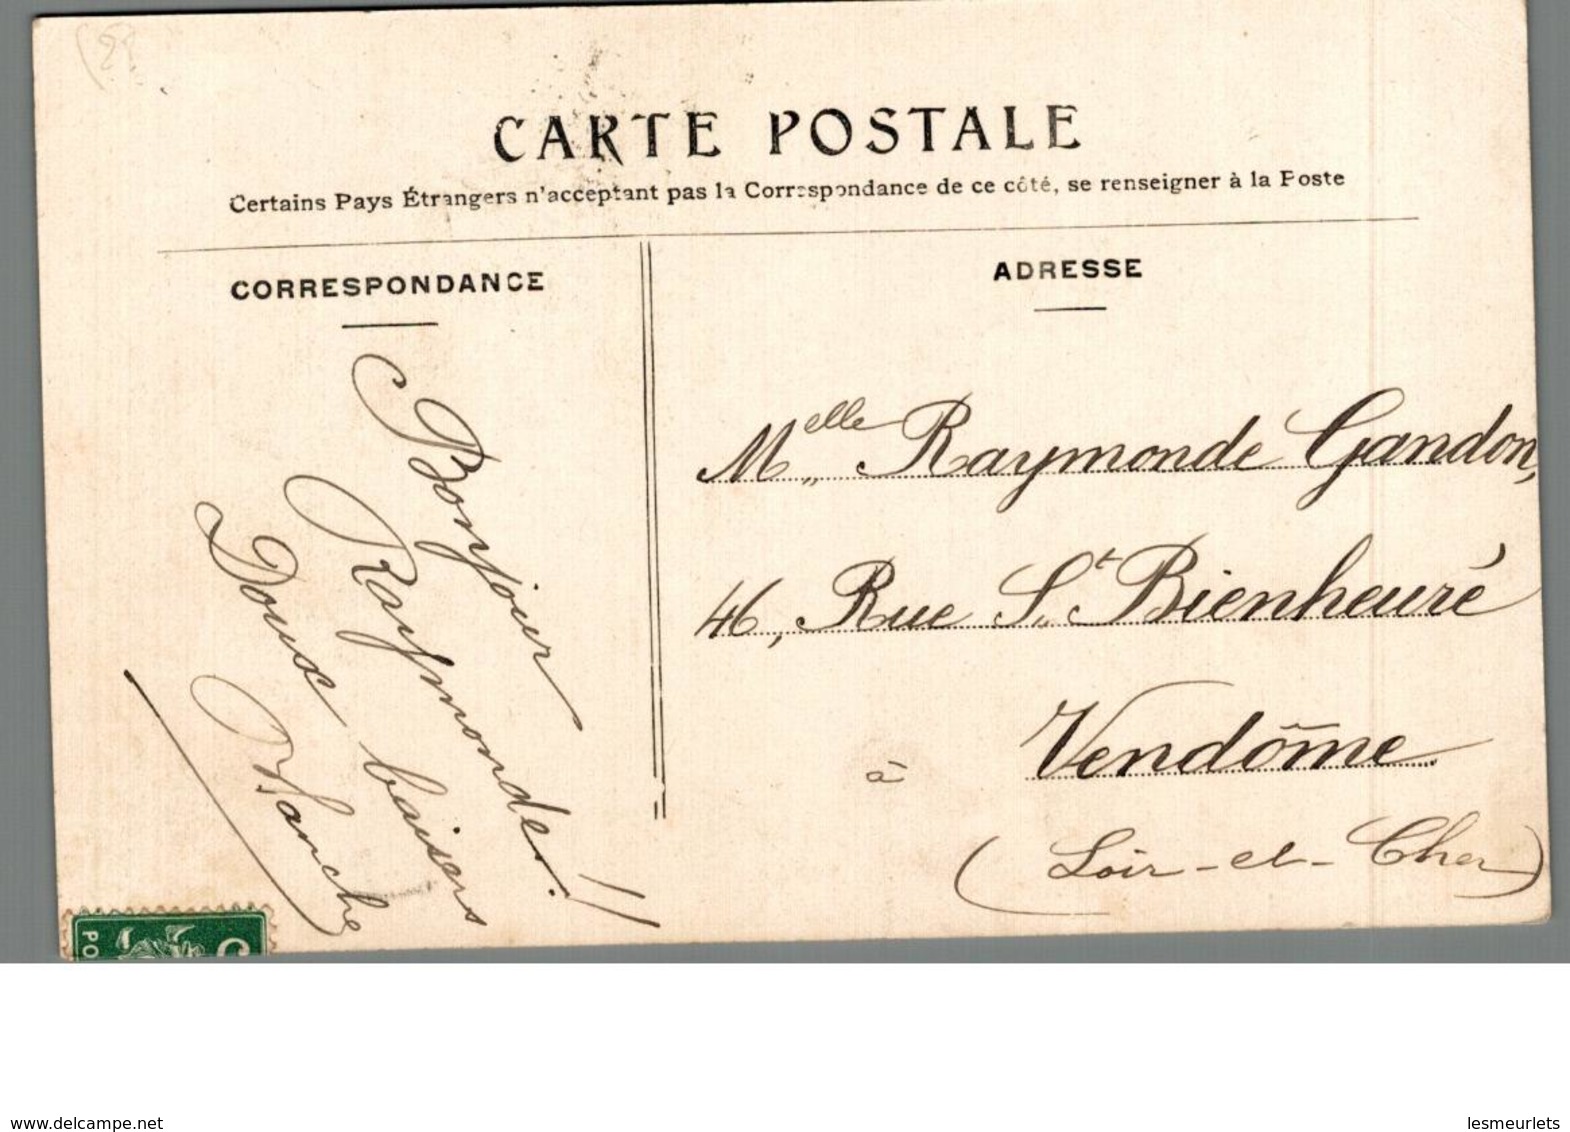 CARTE POSTALE
Certains Pays Étrangers n'acceptant pas la Correspondance de ce côté, se renseigner à la Poste
CORRESPONDANCE
Bonjour
Raymonde!!
Doux baisers
ADRESSE
Melle Raymonde Gandon,
46, Rue St Bienheuré
à Vendôme
(Loir-et-Cher)
PO
www.delcampe.net
lesmeurlets